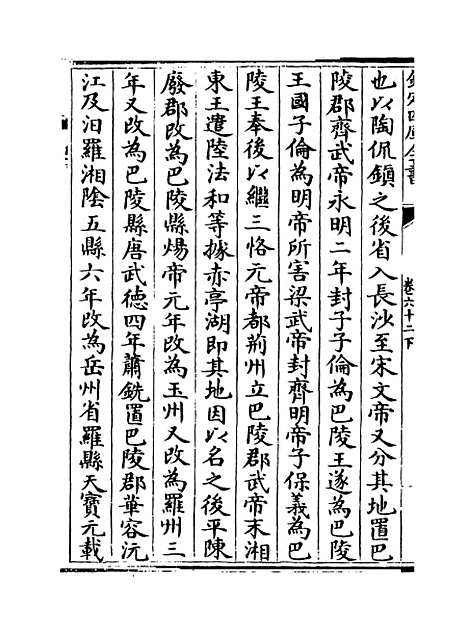 欽定四庫全書
卷六十二下
也以陶侃鎮之後省入長沙至宋文帝又分其地置巴
陵郡齊武帝永明二年封子子倫為巴陵王遂為巴陵
王國子倫為明帝所害梁武帝封齊明帝子保義為巴
陵王奉後以繼三恪元帝都荆州立巴陵郡武帝末湘
東王遣陸法和等據赤亭湖即其地因以名之後平陳
廢郡改為巴陵縣煬帝元年改為玉州又改為羅州三
年又改為巴陵縣唐武德四年蕭銑置巴陵郡華容沅
江及汨羅湘陰五縣六年改為岳州省羅縣天寶元載